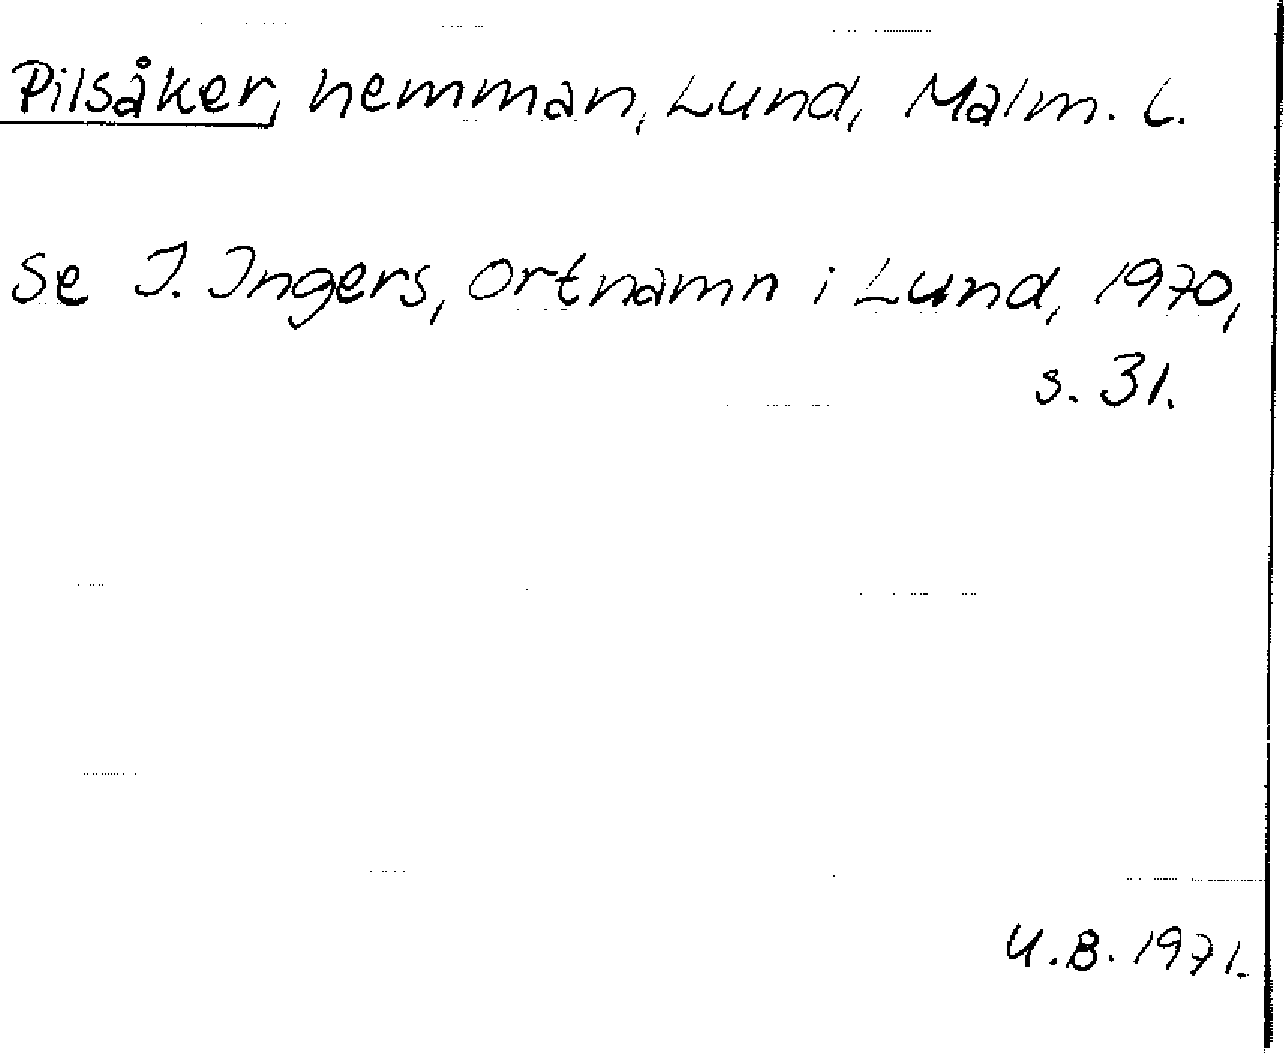 Pilsåker, hemman, Lund, Malm. L.
Se I. Ingers, Ortnamn i Lund, 1970,
s. 31.
U.B. 1971.